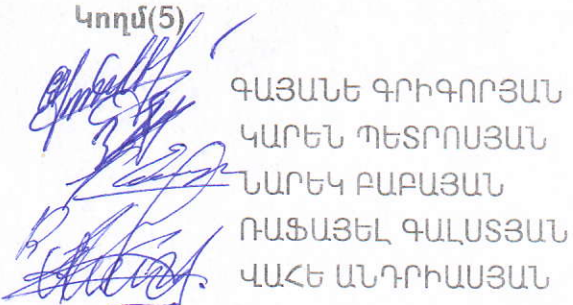 Կողմ(5)
ԳԱՅԱՆԵ ԳՐԻԳՈՐՅԱՆ
ԿԱՐԵՆ ՊԵՏՐՈՍՅԱՆ
ՆԱՐԵԿ ԲԱԲԱՅԱՆ
ՌԱՖԱՅԵԼ ԳԱԼՍՏՅԱՆ
ՎԱՀԵ ԱՆԴՐԻԱՍՅԱՆ